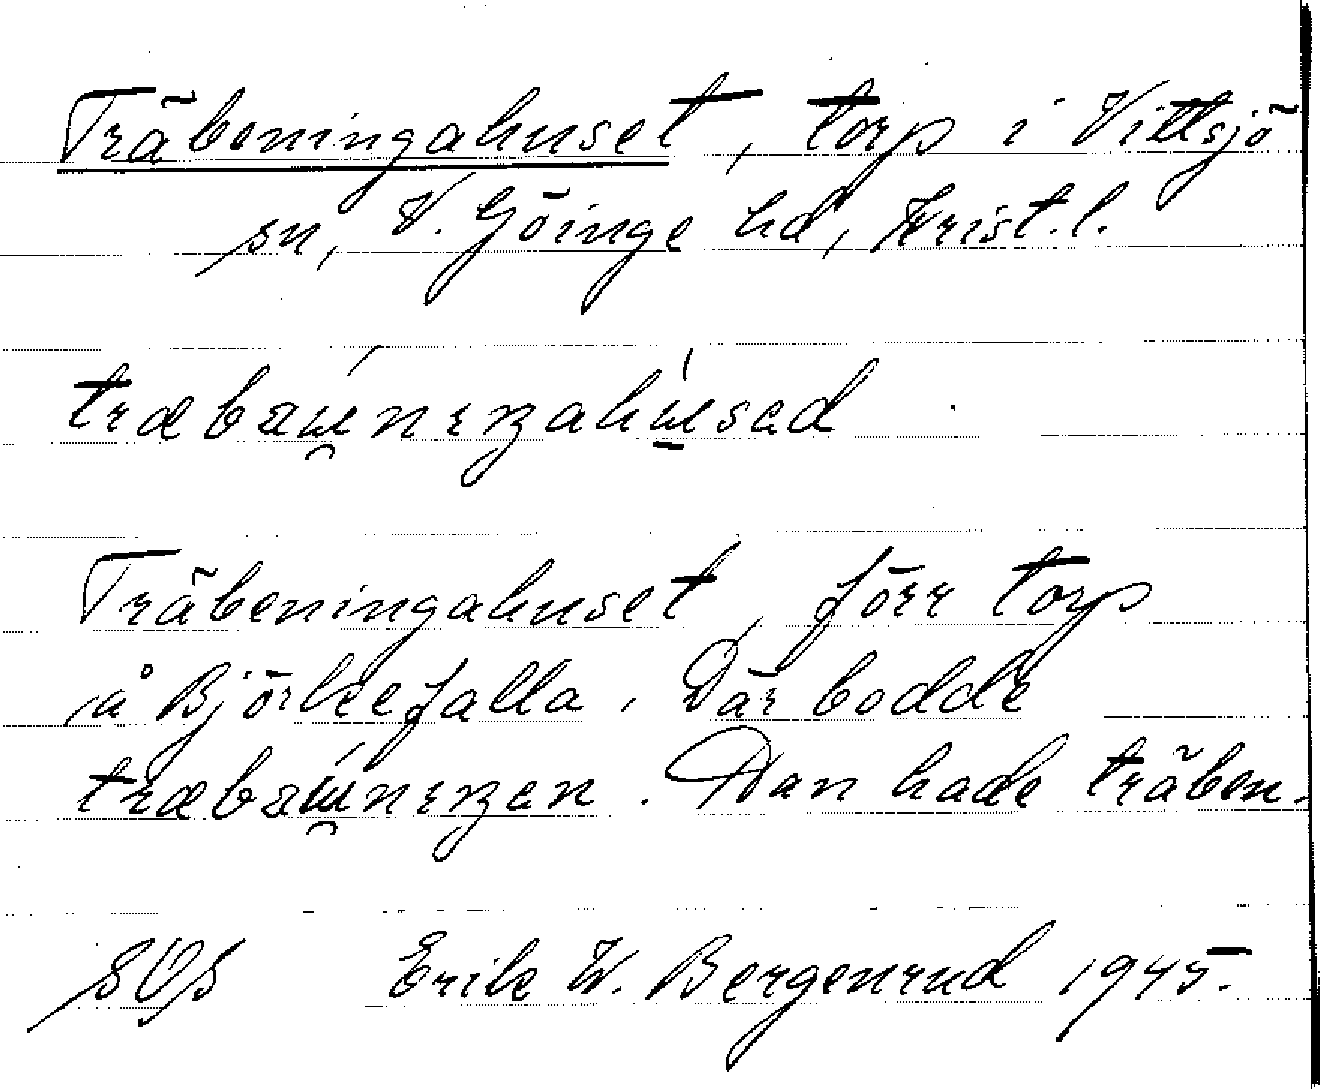 Träbeningahuset, torp i Vittsjö
sn, V. Göinge hd, Krist.l.
Träbeningahuset, förr torp
å Björkefalla. Där bodde
Den hade träben.
SOS Erik W. Bergenrud 1945.